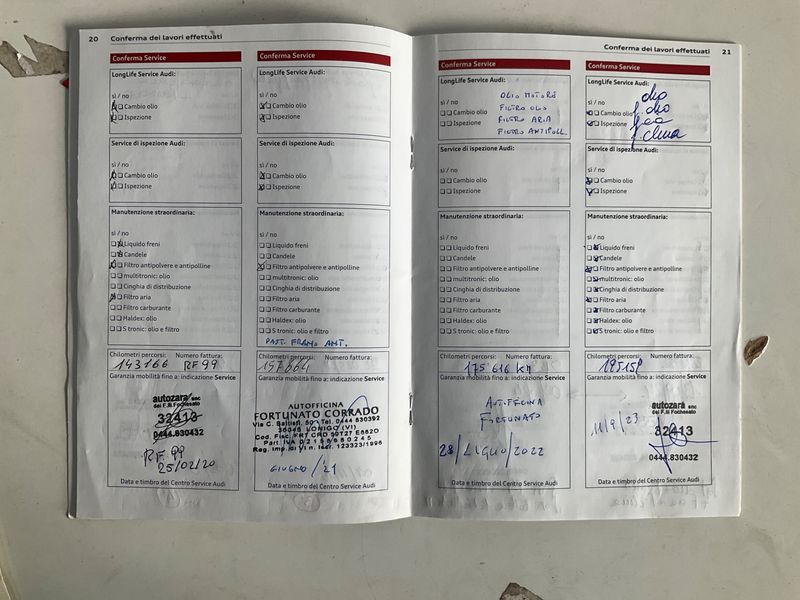 20 Conferma dei lavori effettuati
Conferma Service
LongLife Service Audi:
sì / no
Cambio olio
Ispezione
Service di ispezione Audi:
sì / no
Cambio olio
Ispezione
Manutenzione straordinaria:
sì / no
Liquido freni
Candele
Filtro antipolvere e antipolline
multitronic: olio
Cinghia di distribuzione
Filtro aria
Filtro carburante
Haldex: olio
S tronic: olio e filtro
Chilometri percorsi: Numero fattura:
143166 RF 99
Garanzia mobilità fino a: indicazione Service
autozarà snc
dei F.lli Fochesato
32413
0444.830432
RF 99
25/02/20
Data e timbro del Centro Service Audi
Conferma Service
LongLife Service Audi:
sì / no
Cambio olio
Ispezione
Service di ispezione Audi:
sì / no
Cambio olio
Ispezione
Manutenzione straordinaria:
sì / no
Liquido freni
Candele
Filtro antipolvere e antipolline
multitronic: olio
Cinghia di distribuzione
Filtro aria
Filtro carburante
Haldex: olio
S tronic: olio e filtro
PAST. FRENO ANT.
Chilometri percorsi: Numero fattura:
Garanzia mobilità fino a: indicazione Service
AUTOFFICINA
FORTUNATO CORRADO
Via C. Battisti, 50 - Tel. 0444 830392
36045 LONIGO (VI)
Cod. Fisc. FRT CRD 59T27 E682O
Part. IVA 02156680245
Reg. Imp. di Vi n. Iscr. 123323/1996
GIUGNO /21
Data e timbro del Centro Service Audi
Conferma dei lavori effettuati 21
Conferma Service
LongLife Service Audi:
OLIO MOTORE
sì / no FILTRO OLIO
Cambio olio FILTRO ARIA
Ispezione FILTRO ANTIPOLL.
Service di ispezione Audi:
sì / no
Cambio olio
Ispezione
Manutenzione straordinaria:
sì / no
Liquido freni
Candele
Filtro antipolvere e antipolline
multitronic: olio
Cinghia di distribuzione
Filtro aria
Filtro carburante
Haldex: olio
S tronic: olio e filtro
Chilometri percorsi: Numero fattura:
175 616 KM
Garanzia mobilità fino a: indicazione Service
AUTOFFICINA
FORTUNATO
28/LUGLIO/2022
Data e timbro del Centro Service Audi
Conferma Service
LongLife Service Audi:
olio
sì / no
Cambio olio f. olio
Ispezione
f. clima
Service di ispezione Audi:
sì / no
Cambio olio
Ispezione
Manutenzione straordinaria:
sì / no
Liquido freni
Candele
Filtro antipolvere e antipolline
multitronic: olio
Cinghia di distribuzione
Filtro aria
Filtro carburante
Haldex: olio
S tronic: olio e filtro
Chilometri percorsi: Numero fattura:
Garanzia mobilità fino a: indicazione Service
autozarà snc
dei F.lli Fochesato
11/9/23
32413
0444.830432
Data e timbro del Centro Service Audi